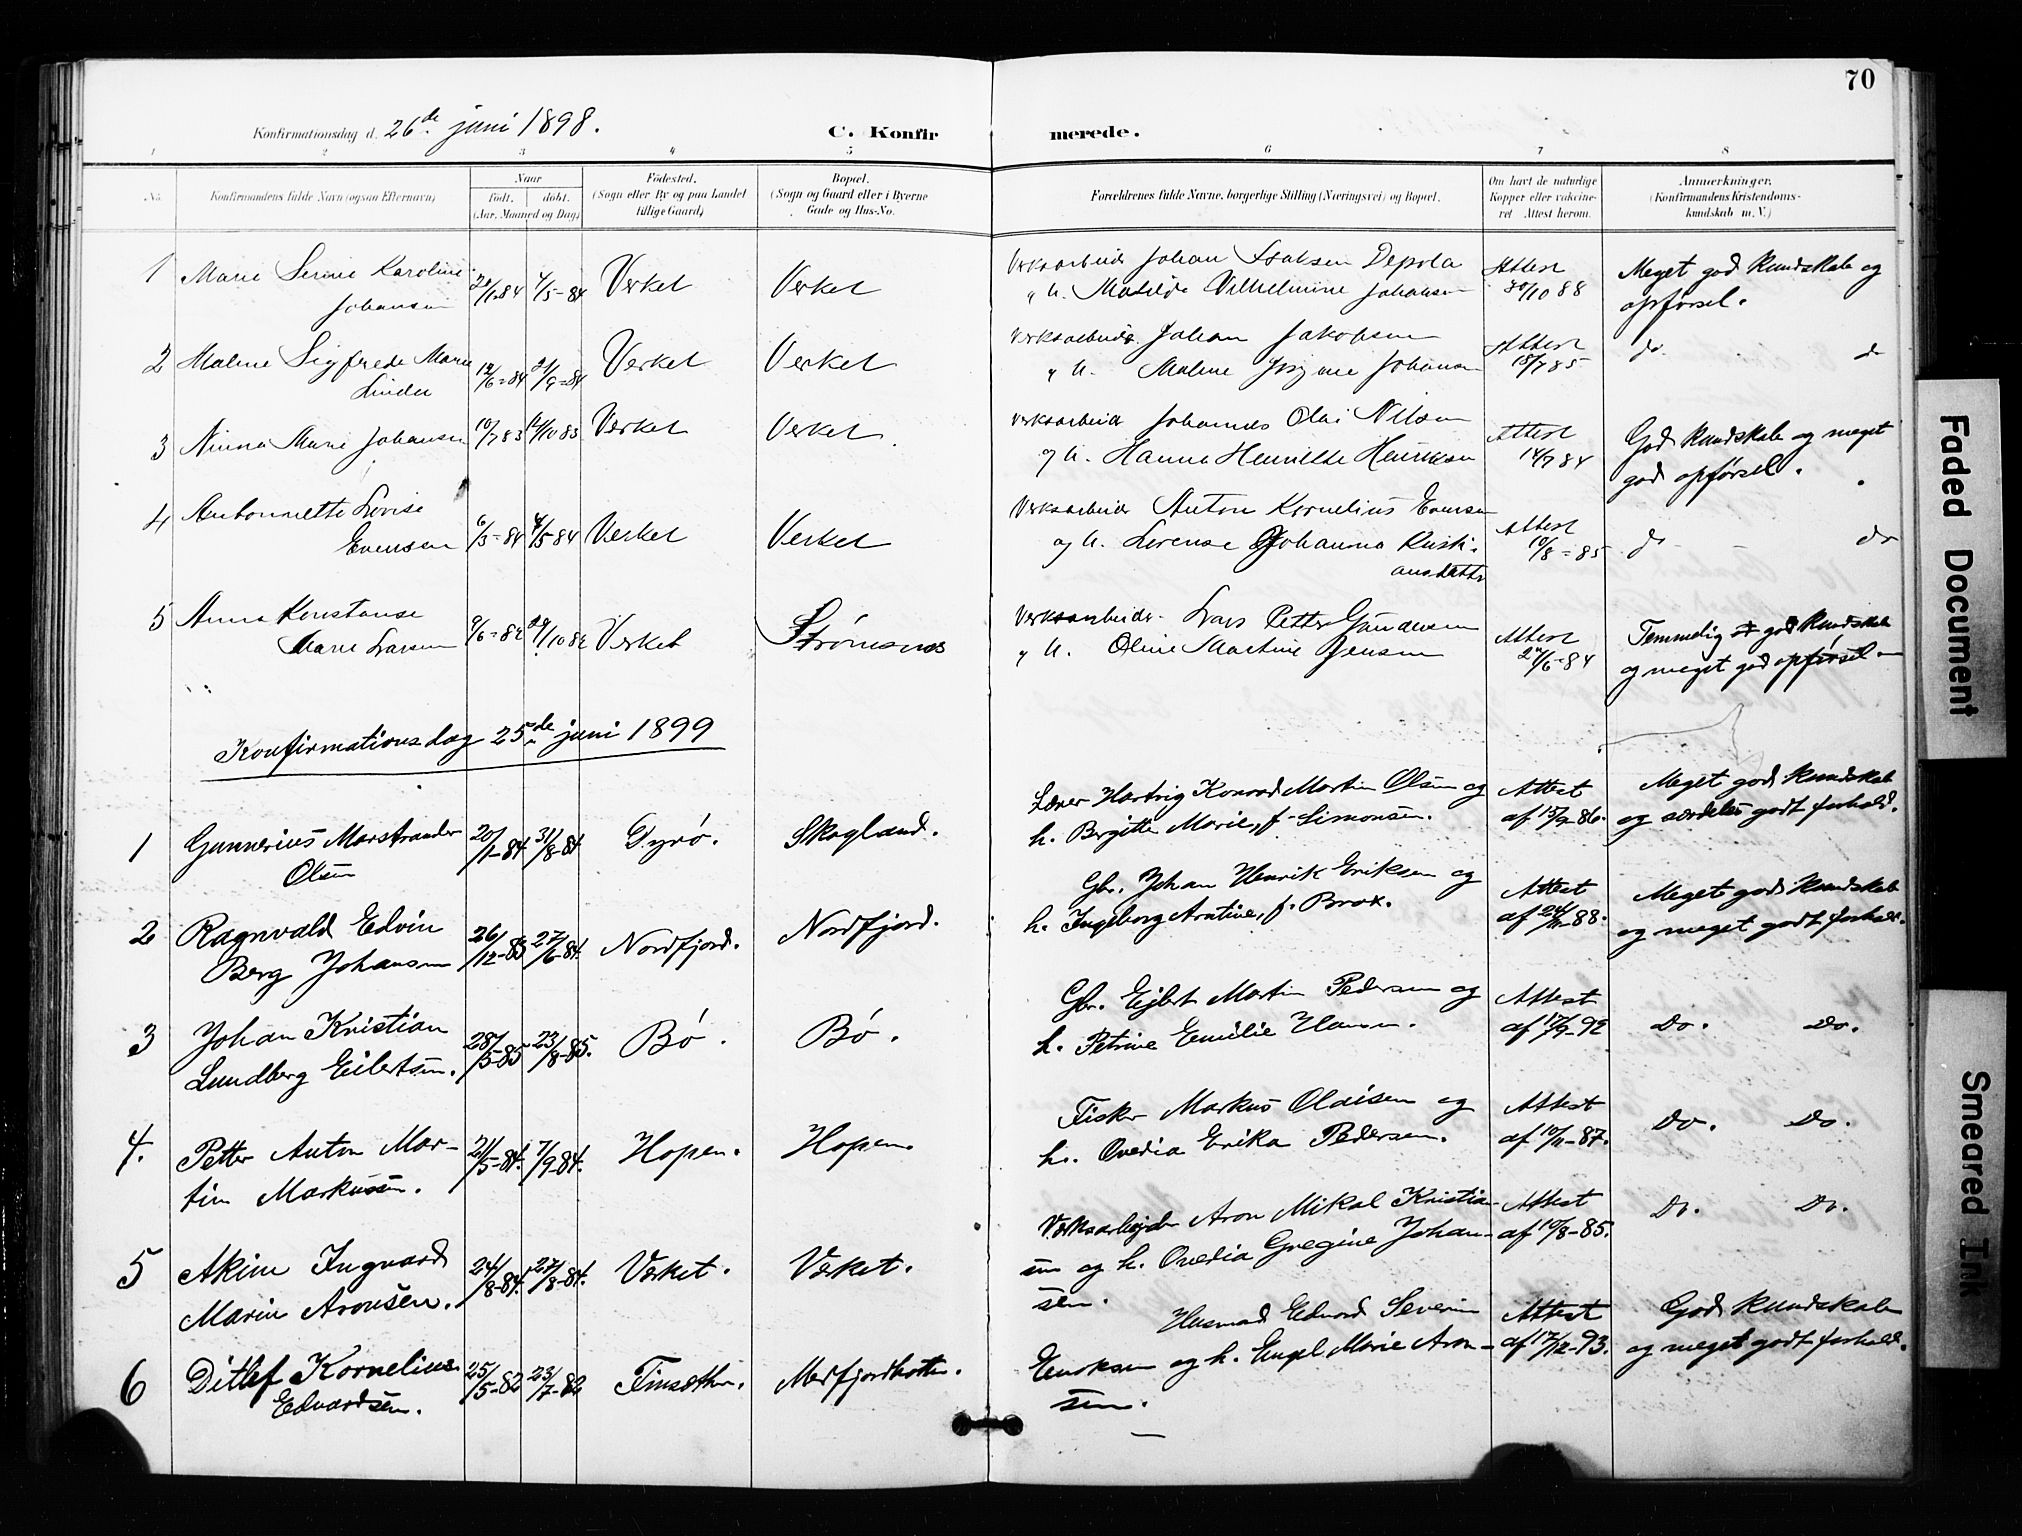 70
Konfirmationsdag d. 26de juni 1898.
C. Konfirmerede.
1 2 3 4 5 6 7 8
No. Konfirmandens fulde Navn (ogsaa Efternavn) Naar født. døbt. (Aar, Maaned og Dag) Fødested. (Sogn eller By og paa Landet tillige Gaard) Bopæl. (Sogn og Gaard eller i Byerne Gade og Hus-No. Forældrenes fulde Navne, borgerlige Stilling (Næringsvei) og Bopæl. Om havt de naturlige Kopper eller vakcineret Attest herom. Anmærkninger. (Konfirmandens Kristendomskundskab m. V.)
1 Marie Serine Karoline Johansen 4/5-84 Verket Verket Verksarbeider Johan Isaksen Depola og h. Matilde Vilhelmine Johansen Attest 30/10 88 Meget god kundskab og opførsel.
2 Malene Sigfrede Marie Linder 12/6=84 21/9=84 Verket Verket Verksarbeider Johan Jakobsen og h. Malene Johansen Attest 18/7 85 do do
3 Ninna Marie Johansen 10/7 83 14/10 83 Verket Verket Verksarbeider Johannes Olai Nilsen og h. Hanna Henriette Henriksen Attest 14/7 84 God kundskab og meget god opførsel.
4 Antonnette Lovise Evensen 6/3=84 4/5 84 Verket Verket Verksarbeider Anton Kornelius Evensen og h. Lorense Johanna Kristiansdatter Attest 10/8=85 do do
5 Anna Konstanse Marie Larsen 9/6=82 29/10 82 Verket Strømsnes Verksarbeider Lars Petter Gundersen og h. Oline Martine Jensen Attest 24/6-84 Temmelig god kundskab og meget god opførsel
Konfirmationsdag 25de juni 1899
1 Gunnerius Marstrander Olsen 20/1-84. 31/8-84 Dyrø. Skogland. Lærer Hartvig Konrad Martin Olsen og h. Bergitte Marie, f. Simonsen. Attest af 15/9-86. Meget god kundskab og særdeles godt forhold.
2 Ragnvald Edvin Berg Johansen 26/12-83 27/6-84. Nordfjord. Nordfjord. Gbr. Johan Henrik Eriksen og h. Ingeborg Arntine, f. Brox. Attest af 24/11-88. Meget god kundskab og meget godt forhold.
3 Johan Kristian Lundberg Eilertsen. 28/5-85 23/8-85. Bø. Bø. Gbr. Ejlert Martin Pedersen og h. Petrine Emilie Hansen. Attest af 17/9-92 Do. Do.
4. Petter Anton Martin Markussen. 21/5-84. 7/9 84. Hopen. Hopen. Fisker Markus Olaisen og h. Ovedia Erika Pedersen. Attest af 10/11-87. Do. Do.
5 Akim Ingvard Marin Aronsen. 24/8-84. 27/8-84. Værket. Værket. Værksarbejder Aron Mikal Kristiansen og h. Ovedia Gregine Johansen. Attest af 10/8-85. Do. Do.
6 Ditlef Kornelius Edvardsen. 25/5-82 23/7-82 Finsæther. Medfjordbotten. Husmand Edvard Severin Enoksen og h. Engel Marie Aronsen. Attest af 17/12-93. God kundskab og meget godt forhold.
Faded Document
Smeared Ink